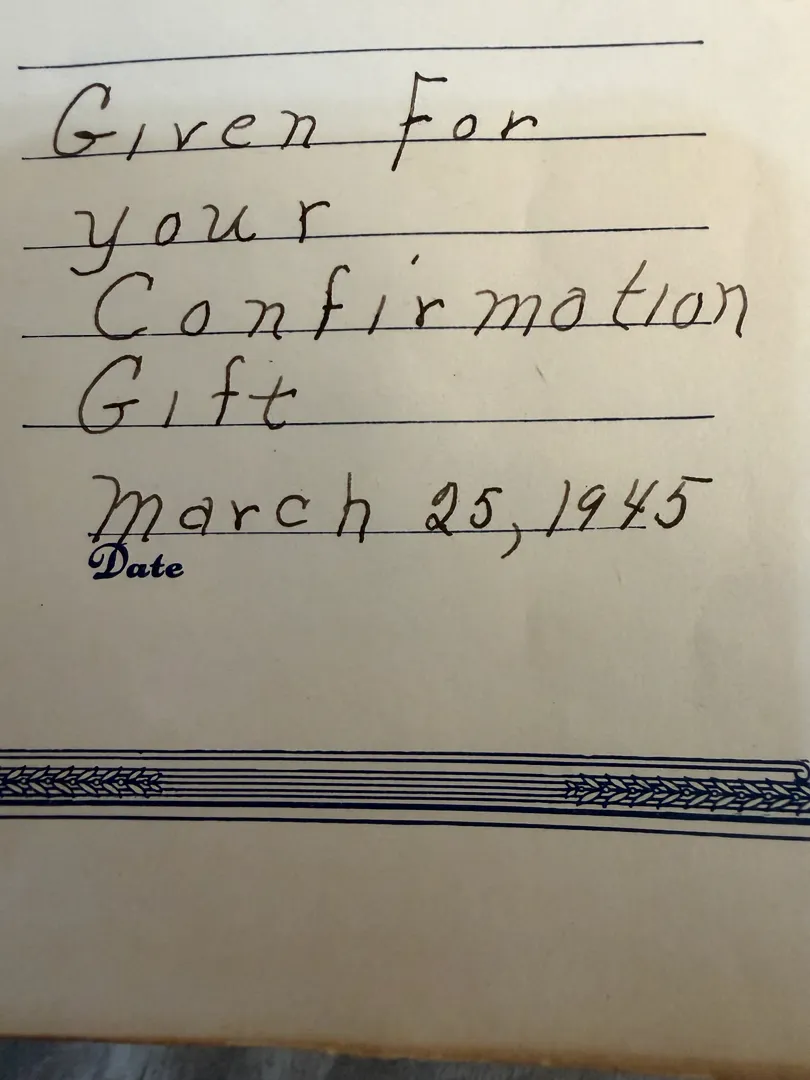 Given For
your
Confirmation
Gift
March 25, 1945
Date